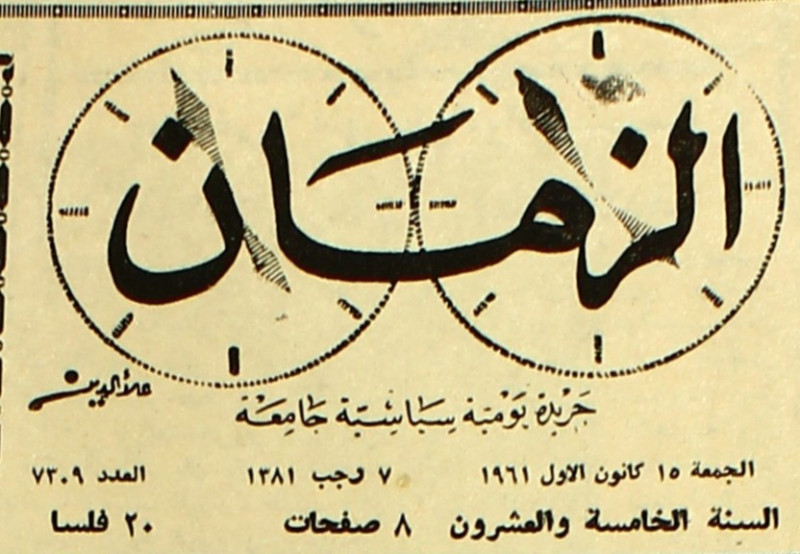 الزمان
علاء الدين
جريدة يومية سياسية جامعة
الجمعة ١٥ كانون الاول ١٩٦١ ٧ رجب ١٣٨١ العدد ٧٣٠٩
السنة الخامسة والعشرون ٨ صفحات ٢٠ فلسا